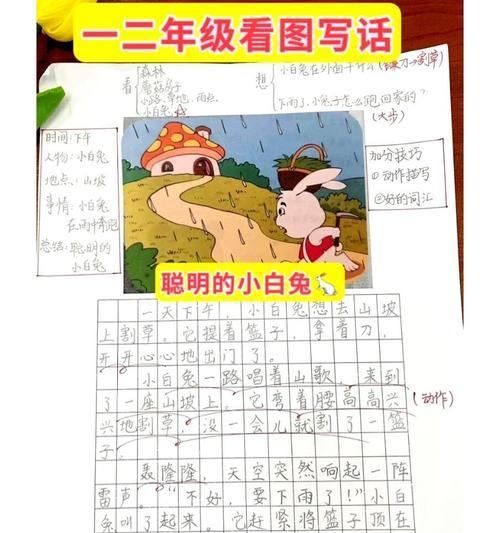 一二年级看图写话
看
森林
蘑菇房子
小路、草地、雨点
小白兔
想
小白兔在外面干什么(拿刀→割草)
下雨了,小兔子怎么跑回家的"
(大步)
时间:下午
人物:小白兔
地点:山坡
事情:小白兔
在雨中奔跑
总结:聪明的
小白兔
加分技巧
①动作描写
②好的词汇
聪明的小白兔
一天下午,小白兔想去山坡
上割草。它提着篮子,拿着刀,
开开心心地出门了。
小白兔一路唱着山歌,来到
了一座山坡上。它弯着腰高高兴
(动作)
兴地割草,没一会儿就割了一篮
子。
轰隆隆,天空突然响起一阵
雷声。"不好,要下雨了!"小白
兔叫了起来。它赶紧将篮子顶在